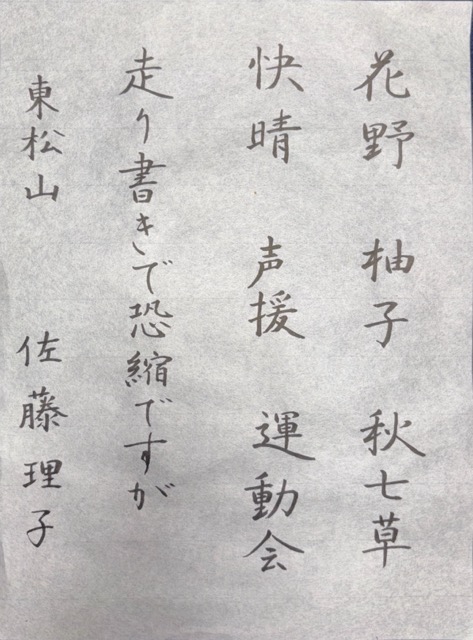 花野 柚子 秋七草
快晴 声援 運動会
走り書きで恐縮ですが
東松山 佐藤理子